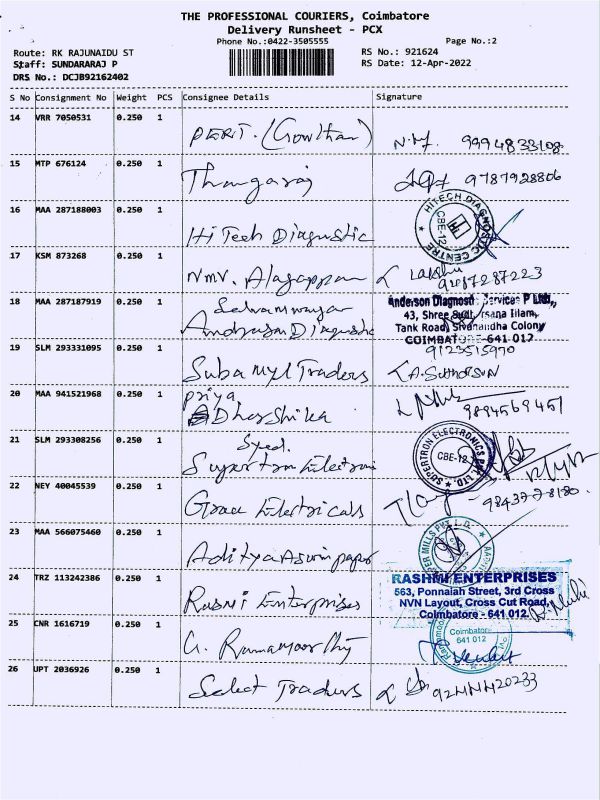 THE PROFESSIONAL COURIERS, Coimbatore
Delivery Runsheet - PCX
Phone No.:0422-3505555
Page No.:2
Route: RK RAJUNAIDU ST
RS No.: 921624
Staff: SUNDARARAJ P
RS Date: 12-Apr-2022
DRS No.: DCJB92162402
S No Consignment No Weight PCS Consignee Details Signature
14 VRR 7050531 0.250 1
(Gowtham) 9994833108
15 MTP 676124 0.250 1
Thangaraj 9787928806
16 MAA 287188003 0.250 1
HiTech Diagnostic
HITECH DIAGNOSTIC CENTRE
CBE-12
17 KSM 873268 0.250 1
NMV. Alagappan
18 MAA 287187919 0.250 1
Selvamnayar
Anderson Diagnostic
Anderson Diagnostic Services P Ltd.,
43, Shree
Tank Road, Sivanandha Colony
COIMBATORE-641 012
9123515970
19 SLM 293331095 0.250 1
Suba Myl Traders
20 MAA 941521968 0.250 1
Priya
Dharshika 9894569451
21 SLM 293308256 0.250 1
Syed.
Supertron Electroni
SUPERTRON ELECTRONICS PVT. LTD.
CBE-12
22 NEY 40045539 0.250 1
Grace Electricals
23 MAA 566075460 0.250 1
Aditya Aswin paper
PAPER MILLS PVT. LTD.
24 TRZ 113242386 0.250 1
Rasmi Enterprises
RASHMI ENTERPRISES
563, Ponnaiah Street, 3rd Cross
NVN Layout, Cross Cut Road,
Coimbatore - 641 012
25 CNR 1616719 0.250 1
G. Ramamoorthy
Coimbatore
641 012
Venkat
26 UPT 2036926 0.250 1
Select Traders